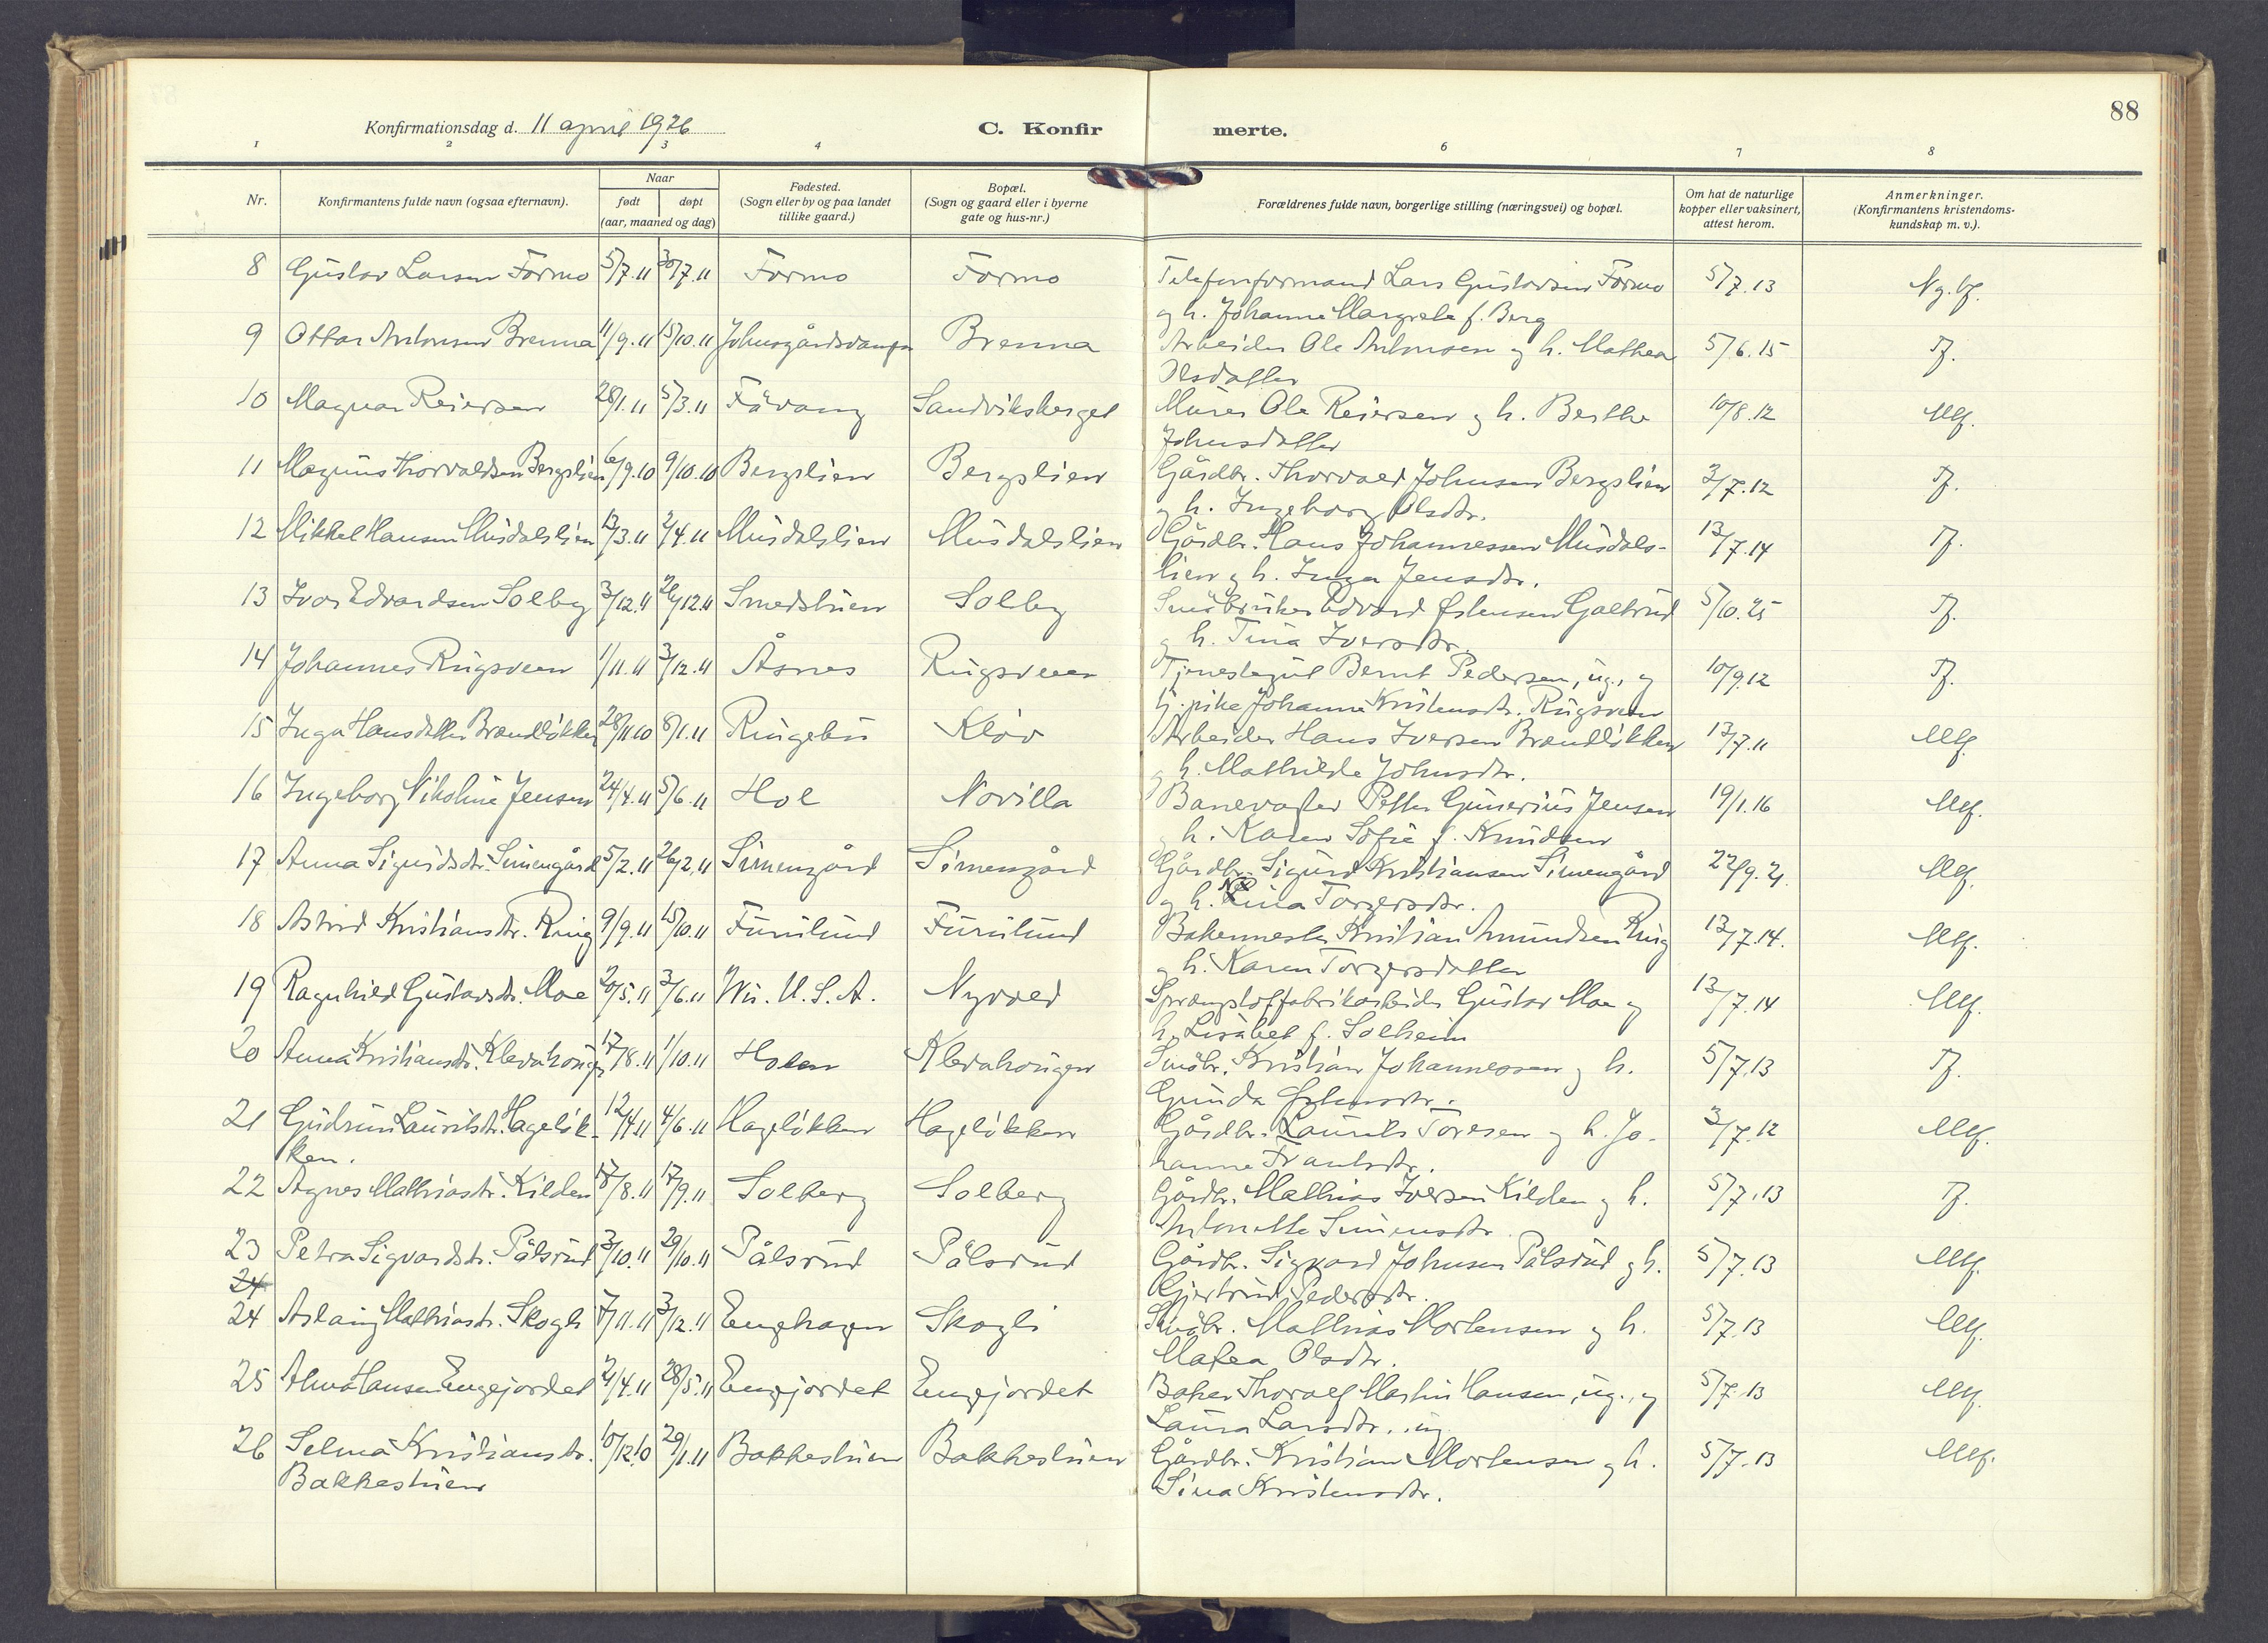 88
Konfirmationsdag d. 11 april 1926 C. Konfir merte.
1 2 3 4 6 7 8
Nr. Konfirmantens fulde navn (ogsaa efternavn). Naar født døpt (aar, maaned og dag) Fødested. (Sogn eller by og paa landet tillike gaard.) Bopæl. (Sogn og gaard eller i byerne gate og hus-nr.) Forældrenes fulde navn, borgerlige stilling (næringsvei) og bopæl. Om hat de naturlige kopper eller vaksinert, attest herom. Anmerkninger. (Konfirmantens kristendoms-kundskap m. v.).
8 Gustav Larsen Formo 5/7.11 30/7.11 Formo Formo Telefonformand Lars Gustavsen Formo 5/7.13
og h. Johanne Margrete f. Berg
9 Ottar Antonsen Brenna 11/9.11 15/10.11 Brenna Arbeider Ole Antonsen og h. Mathea 5/6.15 Tf.
Olsdatter
10 Magnar Reiersen 28/1.11 5/3.11 Fåvang Sandviksberget Murer Ole Reiersen og h. Berthe 10/8.12 Mf.
Johnsdatter
11 Magnus Thorvaldsen Bergslien 6/9.10 9/10.10 Bergslien Bergslien Gårdbr. Thorvald Johnsen Bergslien 3/7.12 Tf.
og h. Ingeborg Olsdtr.
12 Mikkel Hansen Musdalslien 12/3.11 2/4.11 Musdalslien Musdalslien Gårdbr. Hans Johannessen Musdals- 13/7.14 Tf.
lien og h. Inga Jensdtr.
13 Ivar Edvardsen Solby 3/12.11 26/12.11 Smedstuen Solby Småbruker Edvard Østensen Galtrud 5/10.25 Tf.
og h. Tina Iversdtr.
14 Johannes Rugsveen 1/11.11 3/12.11 Åsnes Rugsveen Tjenestegut Bernt Pedersen, ug., og 10/9.12 Tf.
tj.pike Johanne Kristensdtr. Rugsveen
15 Inga Hansdatter Brændløkken 28/11.10 8/1.11 Ringebu Kløv Arbeider Hans Iversen Brændløkken 13/7.11 Mf.
og h. Mathilde Johnsdtr.
16 Ingeborg Nikoline Jensen 24/4.11 5/6.11 Hol Novilla Banevogter Petter Gunerius Jensen 19/1.16 Mf.
og h. Karen Sofie f. Knudsen
17 Anna Sigurdsdtr. Simengård 5/2.11 26/2.11 Simengård Simengård Gårdbr. Sigurd Kristiansen Simengård 22/9.21. Mf.
og h. Torgersdtr.
18 Astrid Kristiansdtr. Ring 9/9.11 15/10.11 Furulund Furulund Bakermester Kristian Amundsen Ring 13/7.14. Mf.
og h. Karen Torgersdatter
19 Ragnhild Gustavsdtr. Moe 20/5.11 3/6.11 Wis. U.S.A. Nyvold Sprængstoffabrikarbeider Gustav Moe og 13/7.14 Mf.
h. Lisabet f. Solheim
20 Anna Kristiansdtr. Klevahaugen 17/8.11 1/10.11 Holen Klevahaugen Småbr. Kristian Johannessen og h. 5/7.13 Tf.
Gunda Østensdtr.
21 Gudrun Lauritsdtr. Hageløk- 12/4.11 4/6.11 Hageløkken Hageløkken Gårdbr. Laurits Toresen og h. Jo- 3/7.12 Mf.
ken. hanne Frantsdtr.
22 Agnes Mathiasdtr. Kilden 18/8.11 17/9.11 Solberg Solberg Gårdbr. Mathias Iversen Kilden og h. 5/7.13 Tf.
Antonette Simensdtr.
23 Petra Sigvardsdtr. Pålsrud 3/10.11 29/10.11 Pålsrud Pålsrud Gårdbr. Sigvard Johnsen Pålsrud og h. 5/7.13 Mf.
24 Gjertrud Pedersdtr.
24 Aslaug Mathiasdtr. Skogli 7/11.11 3/12.11 Enghagen Skogli Småbr. Mathias Mortensen og h. 5/7.13 Mf.
Matea Olsdtr.
25 Alma Hansen Engjordet 21/4.11 28/5.11 Engjordet Engjordet Baker Thoralf Martin Hansen, ug., og 5/7.13 Mf.
Laura Larsdtr., ug.
26 Selma Kristiansdtr. 10/12.10 29/1.11 Bakkestuen Bakkestuen Gårdbr. Kristian Mortensen og h. 5/7.13 Mf.
Bakkestuen Sina Kristensdtr.